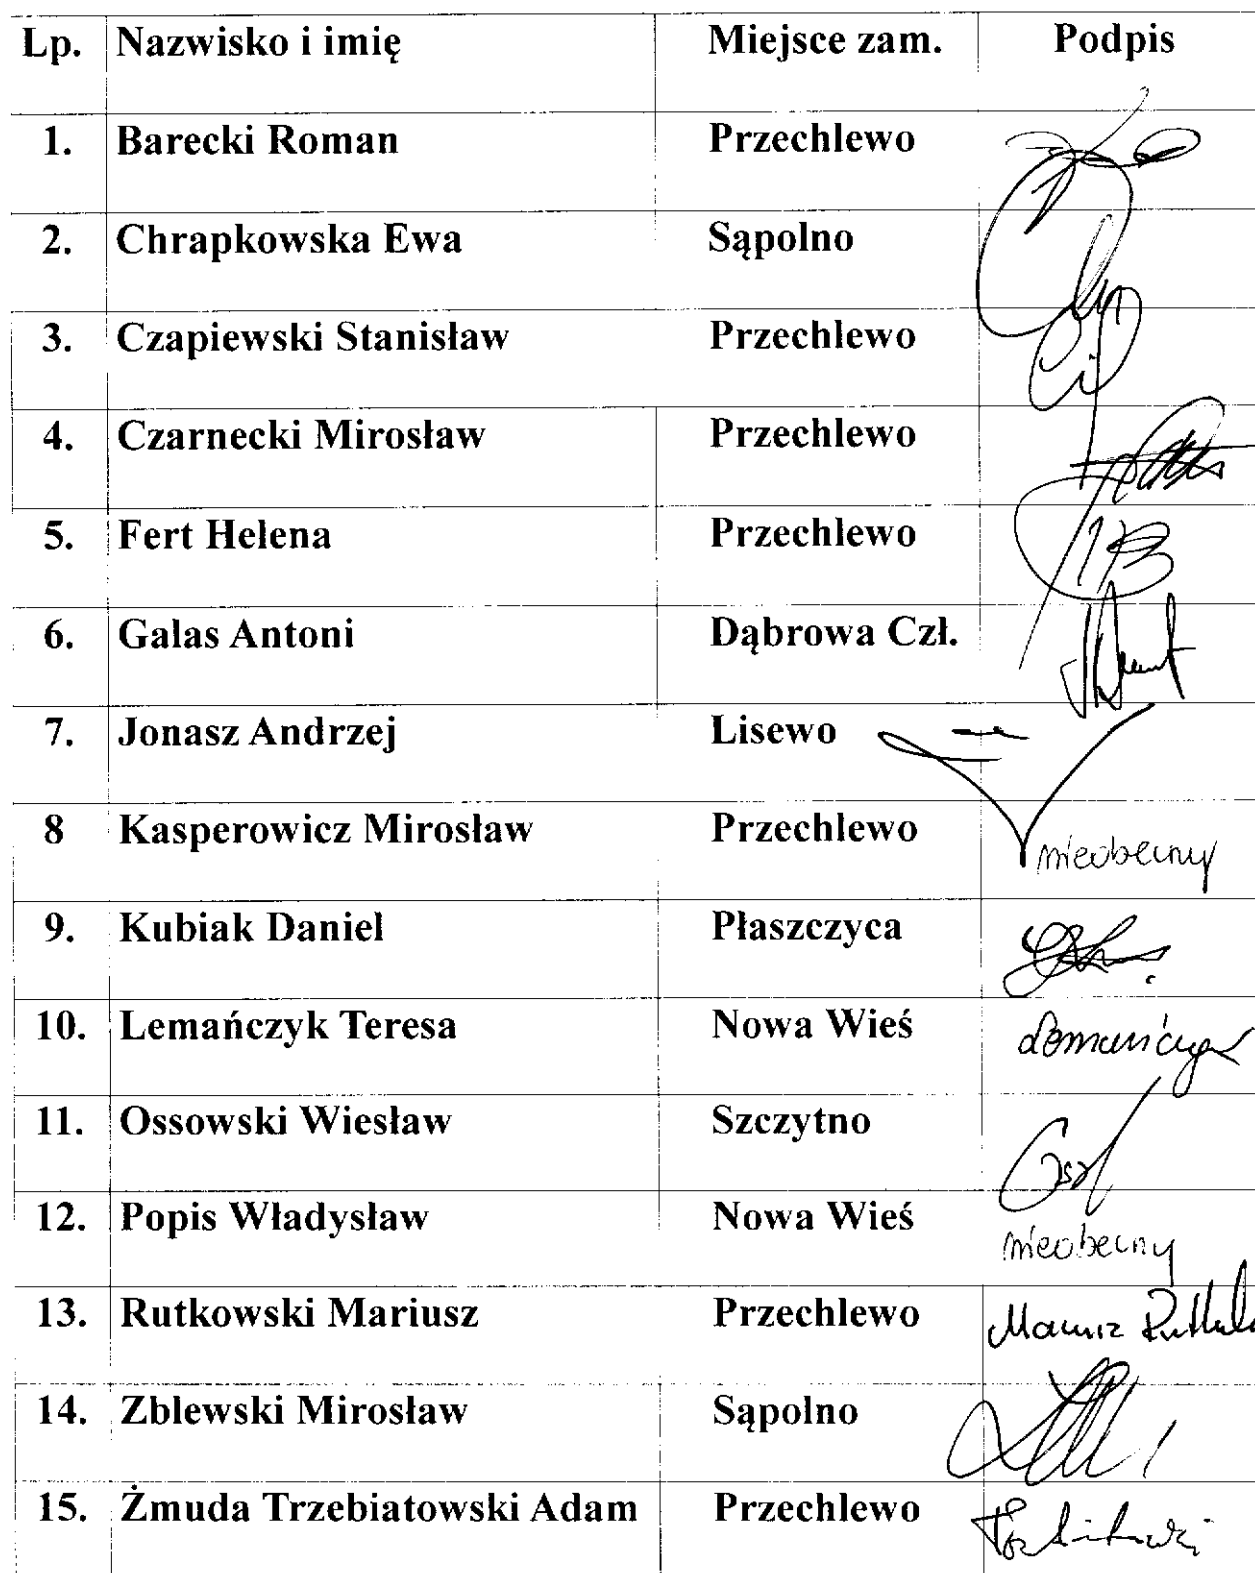 Lp. Nazwisko i imię Miejsce zam. Podpis
1. Barecki Roman Przechlewo
2. Chrapkowska Ewa Sąpolno
3. Czapiewski Stanisław Przechlewo
4. Czarnecki Mirosław Przechlewo
5. Fert Helena Przechlewo
6. Galas Antoni Dąbrowa Czł.
7. Jonasz Andrzej Lisewo
8 Kasperowicz Mirosław Przechlewo nieobecny
9. Kubiak Daniel Płaszczyca
10. Lemańczyk Teresa Nowa Wieś
11. Ossowski Wiesław Szczytno
12. Popis Władysław Nowa Wieś nieobecny
13. Rutkowski Mariusz Przechlewo Mariusz
14. Zblewski Mirosław Sąpolno
15. Żmuda Trzebiatowski Adam Przechlewo